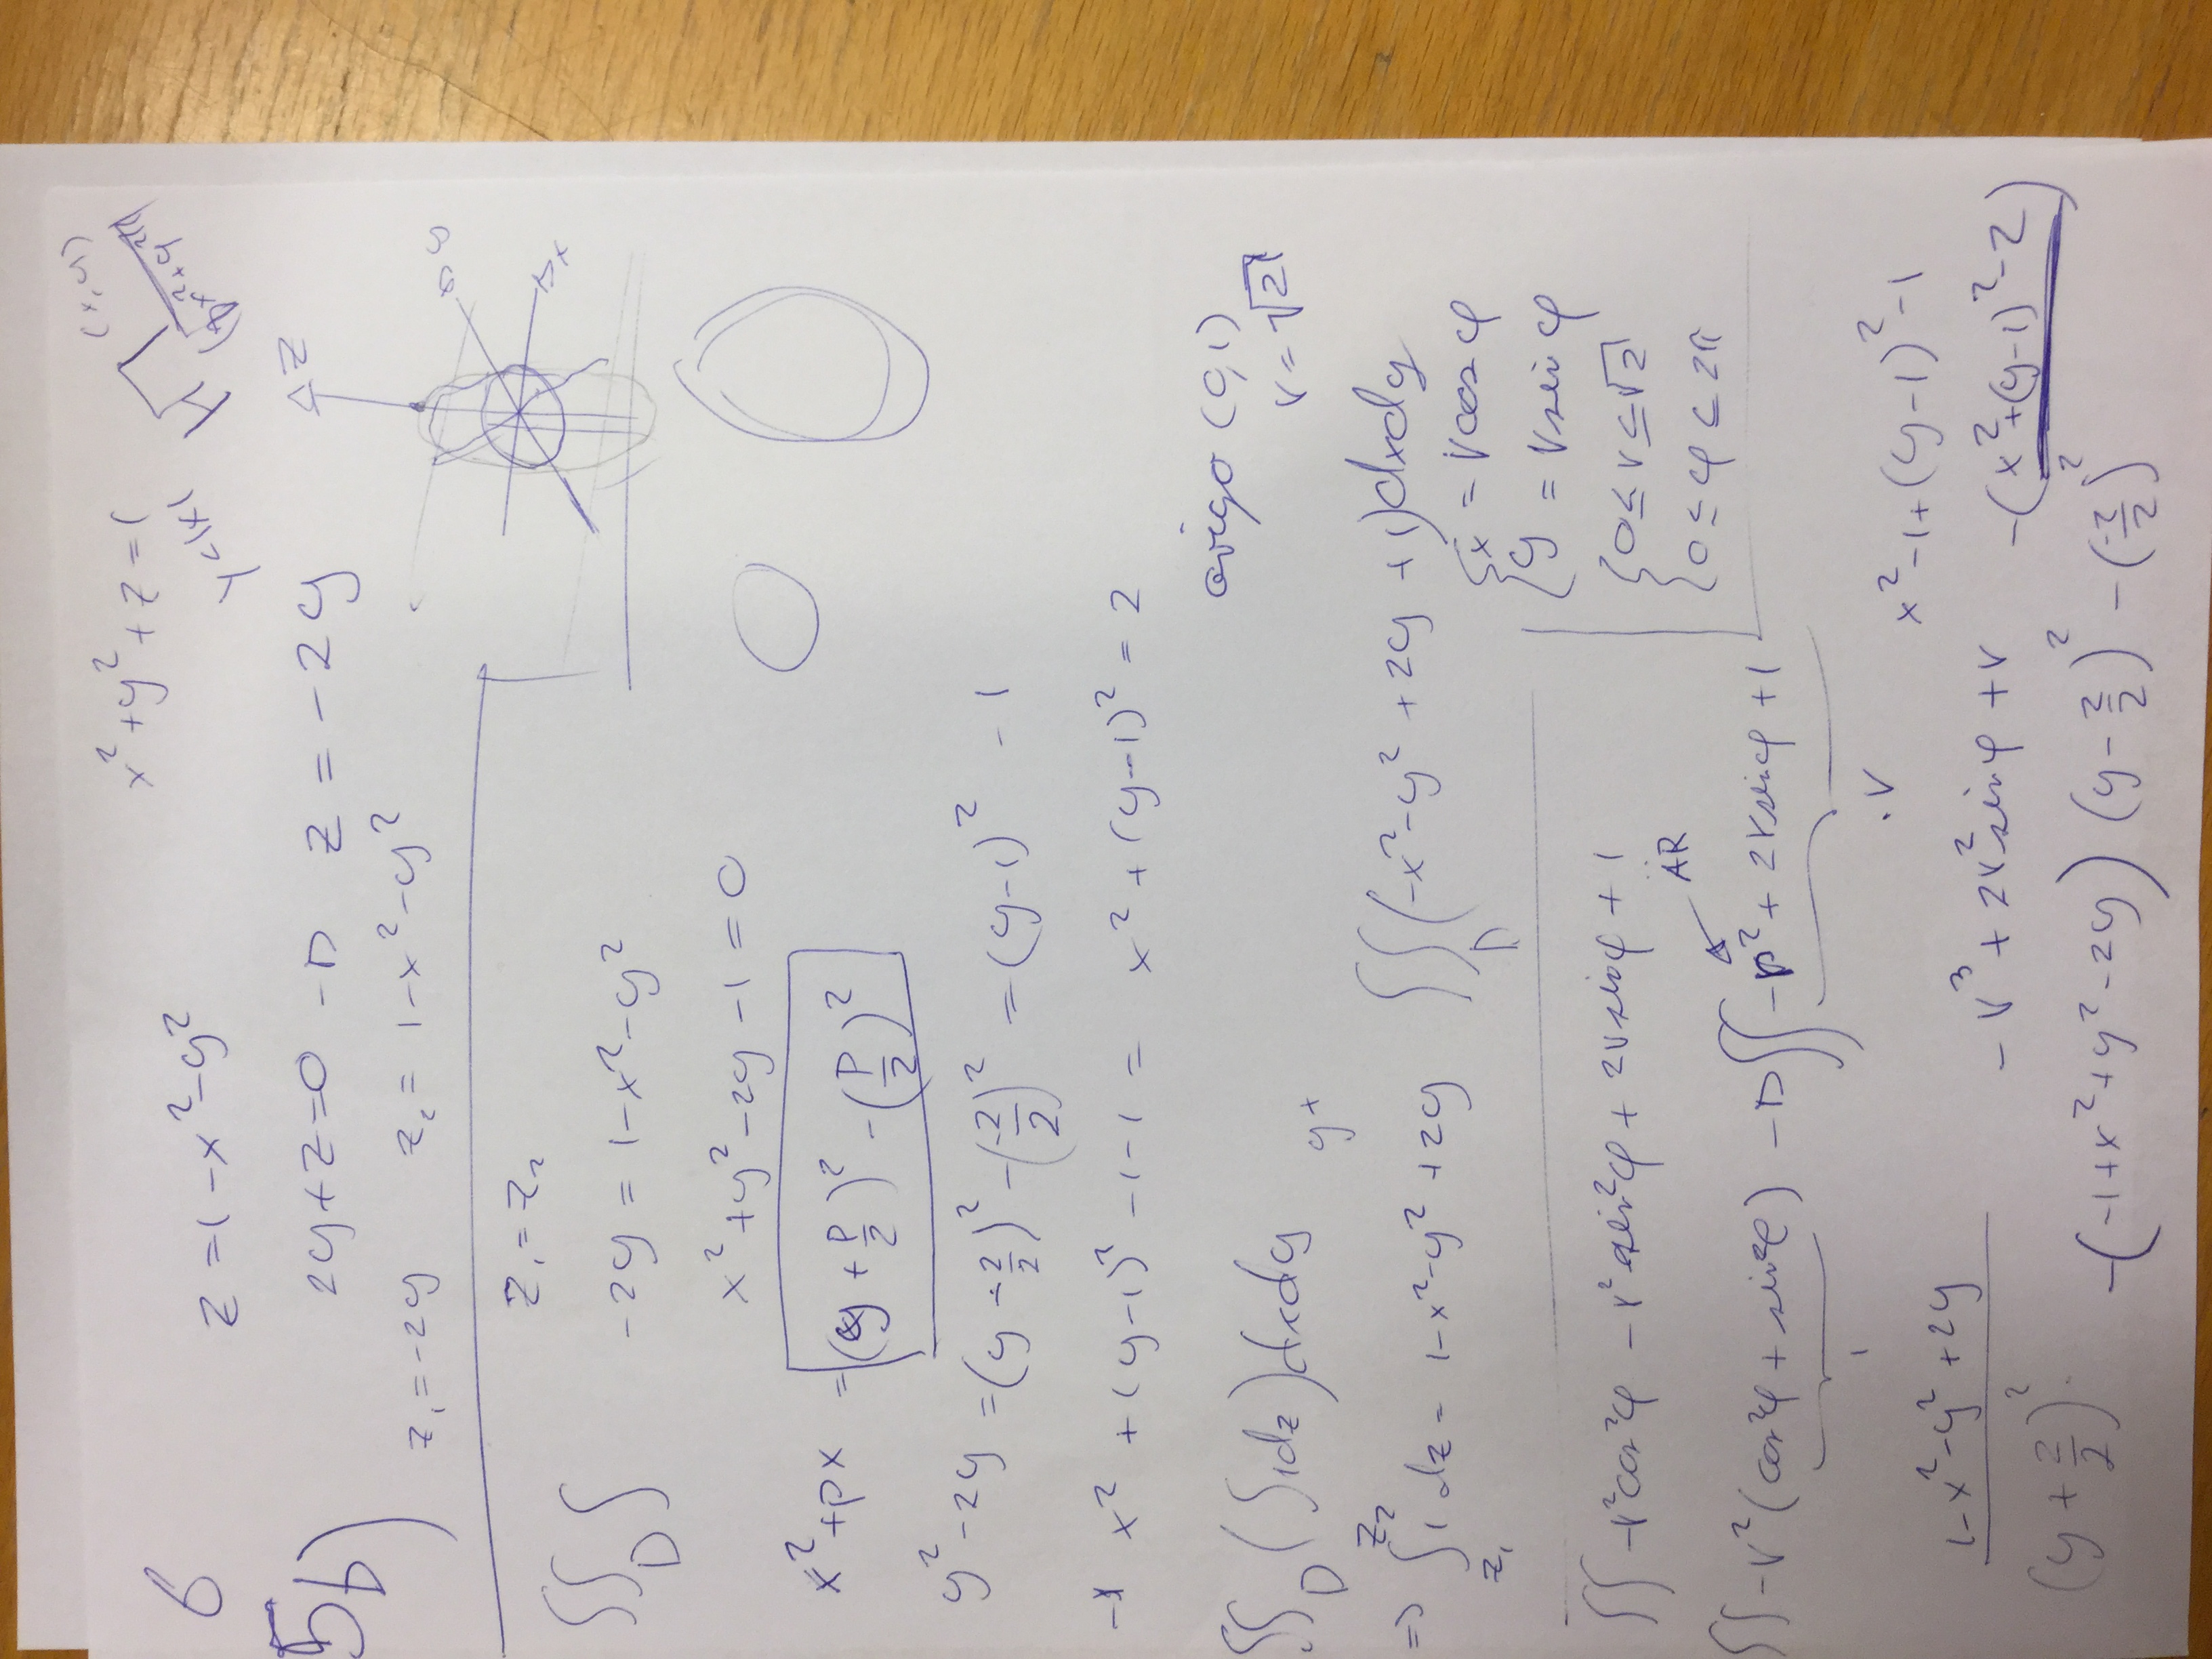 x²+y²+z=1
(x,y)
y<|x|
6
z=1-x²-y²
5b)
2y+z=0 → z=-2y
z₁=-2y z₂=1-x²-y²
z
y
x
z₁=z₂
∬_D ∫
-2y=1-x²-y²
x²+y²-2y-1=0
x²+px=(y+p/2)²-(p/2)²
y²-2y=(y-2/2)²-(-2/2)²=(y-1)²-1
x²+(y-1)²-1-1= x²+(y-1)²=2
origo (0,1)
r=√2
∬_D(∫1dz)dxdy
y+
⇒ ∫_{z₁}^{z₂}1dz=1-x²-y²+2y ∬_D(-x²-y²+2y+1)dxdy
{x=rcosφ
{y=rsinφ
{0≤r≤√2
{0≤φ≤2π
∬-r²cos²φ-r²sin²φ+2rsinφ+1
ÄR
∬-r²(cos²φ+sin²φ) → ∬-r²+2rsinφ+1
1
·r
x²-1+(y-1)²-1
1-x²-y²+2y
-r³+2r²sinφ+r
-(x²+(y-1)²-2)
(y+2/2)²-
-(-1+x²+y²-2y) (y-2/2)²-(-2/2)²